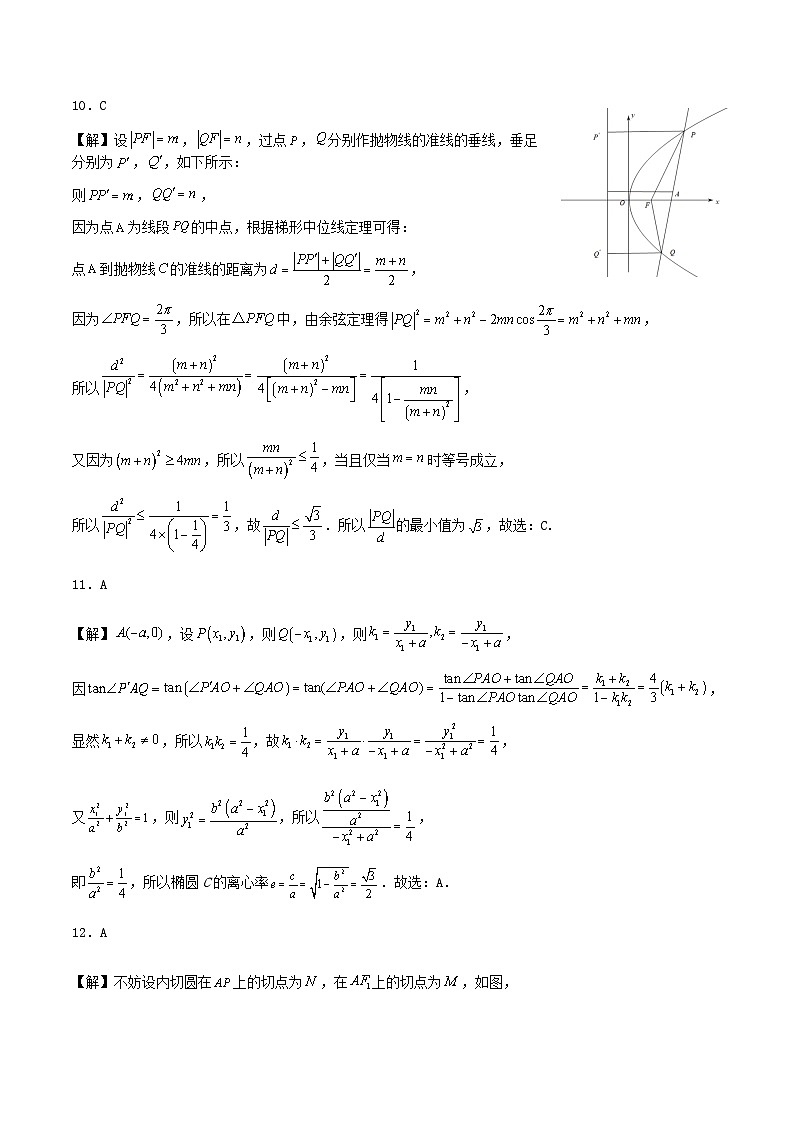 10. C
【解】设|PF|=m，|QF|=n，过点P，Q分别作抛物线的准线的垂线，垂足
分别为P′，Q′，如下所示:
则PP′=m，QQ′=n，
因为点A为线段PQ的中点，根据梯形中位线定理可得:
点A到抛物线C的准线的距离为d=(|PP′|+|QQ′|)/2=(m+n)/2，
因为∠PFQ=2π/3，所以在△PFQ中，由余弦定理得|PQ|²=m²+n²−2mn cos 2π/3=m²+n²+mn，
所以d²/|PQ|²=(m+n)²/(4(m²+n²+mn))=(m+n)²/(4[(m+n)²−mn])=1/(4[1−mn/(m+n)²])，
又因为(m+n)²≥4mn，所以mn/(m+n)²≤1/4，当且仅当m=n时等号成立，
所以d²/|PQ|²≤1/(4×(1−1/4))=1/3，故d/|PQ|≤√3/3．所以|PQ|/d的最小值为√3，故选：C.
y
P′
P
A
O
F
x
Q′
Q
11. A
【解】A(−a,0)，设P(x₁,y₁)，则Q(−x₁,y₁)，则k₁=y₁/(x₁+a),k₂=y₁/(−x₁+a)，
因tan∠P′AQ=tan(∠P′AO+∠QAO)=tan(∠PAO+∠QAO)=(tan∠PAO+tan∠QAO)/(1−tan∠PAO tan∠QAO)=(k₁+k₂)/(1−k₁k₂)=4/3(k₁+k₂)，
显然k₁+k₂≠0，所以k₁k₂=1/4，故k₁·k₂=y₁/(x₁+a)·y₁/(−x₁+a)=y₁²/(−x₁²+a²)=1/4，
又x₁²/a²+y₁²/b²=1，则y₁²=b²(a²−x₁²)/a²，所以(b²(a²−x₁²)/a²)/(−x₁²+a²)=1/4，
即b²/a²=1/4，所以椭圆C的离心率e=c/a=√(1−b²/a²)=√3/2．故选：A.
12. A
【解】不妨设内切圆在AP上的切点为N，在AF₁上的切点为M，如图，